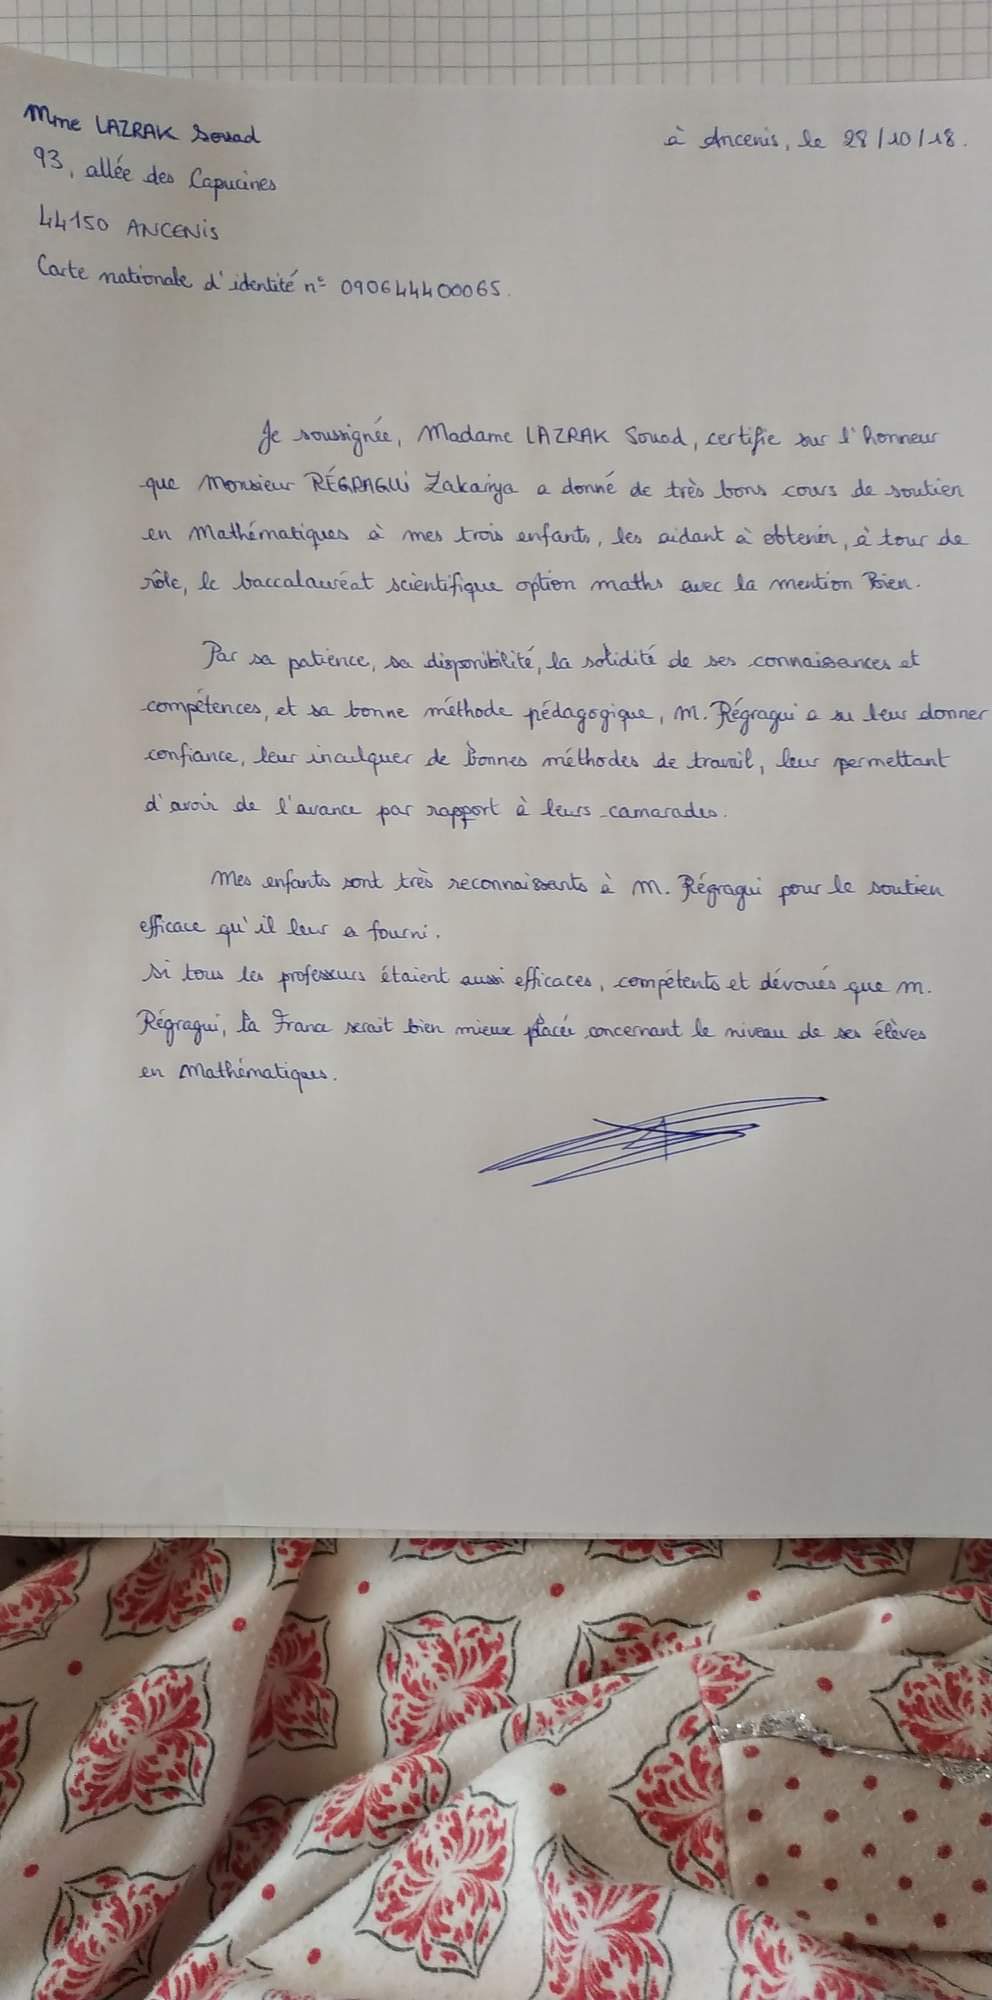 Mme LAZRAK Souad
à Ancenis, le 28/10/18.
93, allée des Capucines
44150 ANCENIS
Carte nationale d'identité n° 090644400065.
Je soussignée, Madame LAZRAK Souad, certifie sur l'honneur
que Monsieur RÉGRAGUi Zakariya a donné de très bons cours de soutien
en Mathématiques à mes trois enfants, les aidant à obtenir, à tour de
rôle, le baccalauréat scientifique option maths avec la mention Bien.
Par sa patience, sa disponibilité, la solidité de ses connaissances et
compétences, et sa bonne méthode pédagogique, M. Régragui a su leur donner
confiance, leur inculquer de bonnes méthodes de travail, leur permettant
d'avoir de l'avance par rapport à leurs camarades.
Mes enfants sont très reconnaissants à M. Régragui pour le soutien
efficace qu'il leur a fourni.
Si tous les professeurs étaient aussi efficaces, compétents et dévoués que M.
Régragui, la France serait bien mieux placée concernant le niveau de ses élèves
en Mathématiques.